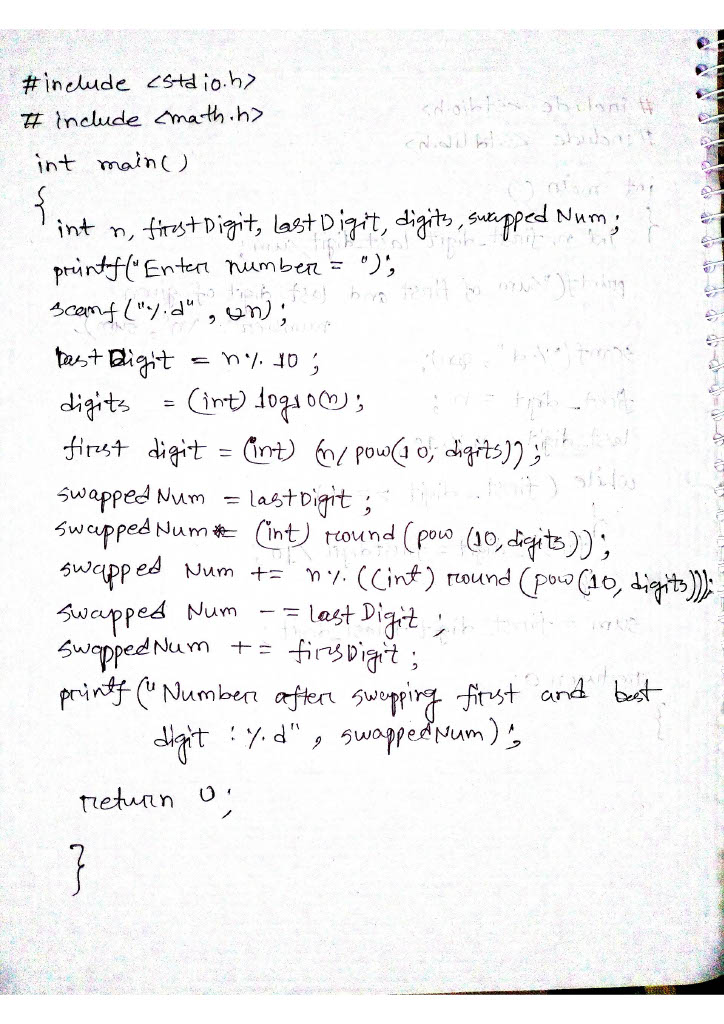 #include <stdio.h>
# include <math.h>
int main()
{
int n, firstDigit, lastDigit, digits, swappedNum;
printf("Enter number = ");
scanf ("%d", &n);
lastDigit = n% 10;
digits = (int) log10(n);
first digit = (int) (n/pow(10, digits));
swappedNum = lastDigit;
swappedNum *= (int) round (pow (10, digits));
swapped Num += n% ((int) round (pow(10, digits)));
swapped Num -= last Digit;
swappedNum += firsDigit;
printf ("Number after swapping first and last
digit : %d", swappedNum);
return 0;
}